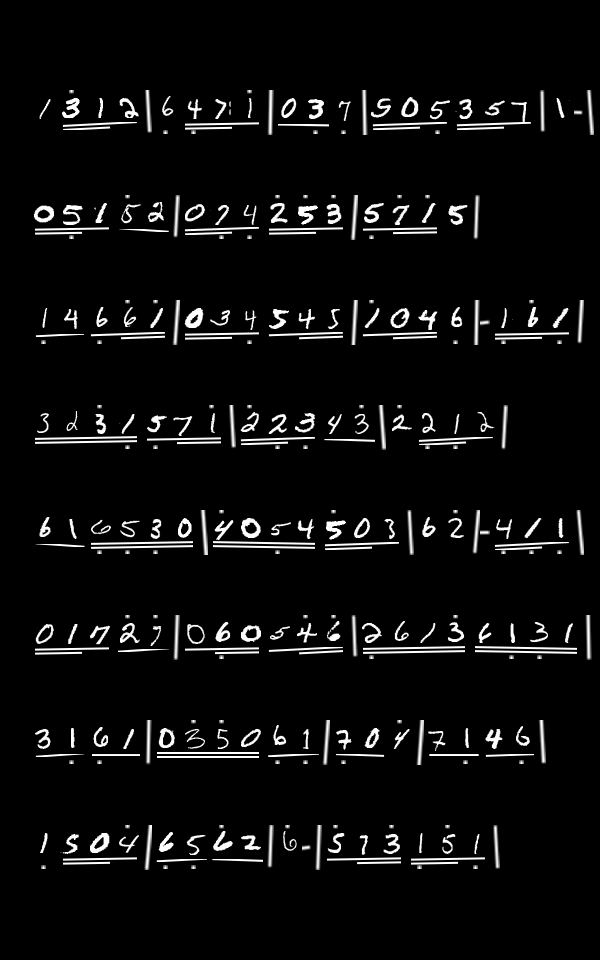 1 3 1 2 | 6 4 7 1 | 0 3 7 | 5 0 5 3 5 7 | 1 - |
0 5 1 5 2 | 0 7 4 2 5 3 | 5 7 1 5 |
1 4 6 6 1 | 0 3 4 5 4 5 | 1 0 4 6 | - 1 6 1 |
3 2 3 1 5 7 1 | 2 2 3 4 3 | 2 2 1 2 |
6 1 6 5 3 0 | 4 0 5 4 5 0 3 | 6 2 | - 4 1 1 |
0 1 7 2 7 | 0 6 0 5 4 6 | 2 6 1 3 6 1 3 1 |
3 1 6 1 | 0 3 5 0 6 1 | 7 0 4 | 7 1 4 6 |
1 5 0 4 | 6 5 6 2 | 6 - | 5 7 3 1 5 1 |